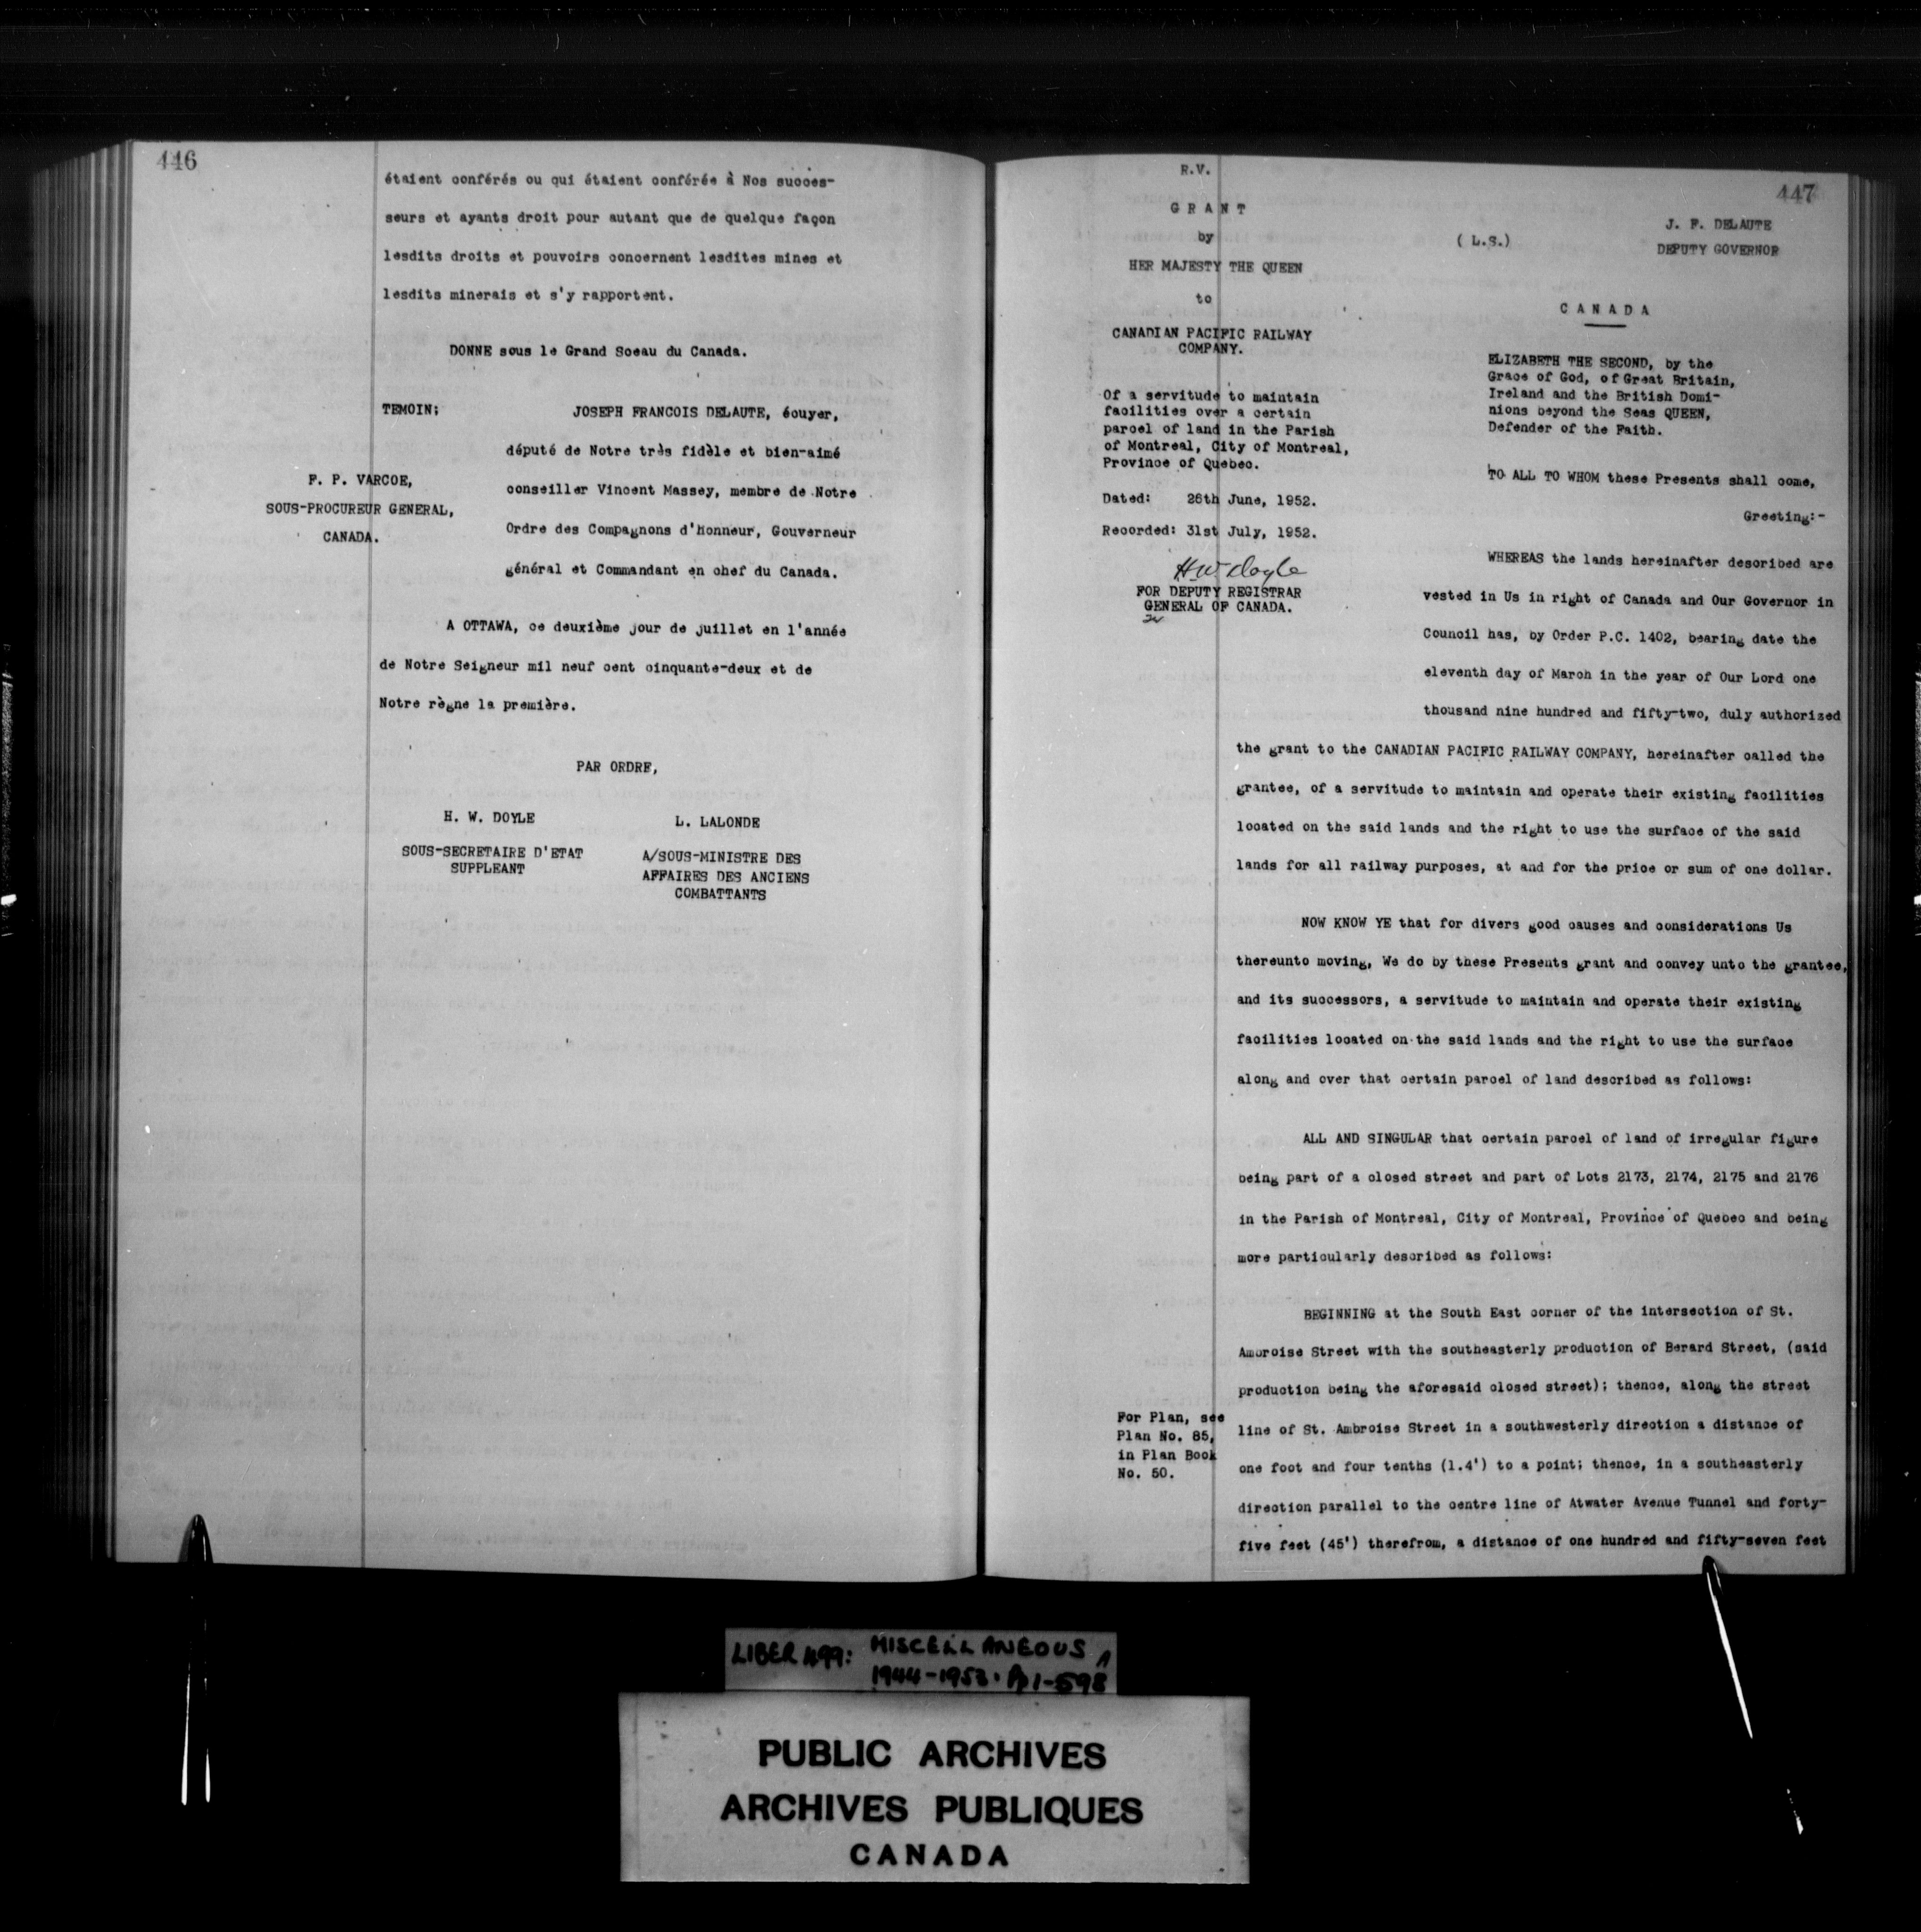 446
étaient conférés ou qui étaient conférée à Nos succes-
seurs et ayants droit pour autant que de quelque façon
lesdits droits et pouvoirs concernent lesdites mines et
lesdits minerais et s'y rapportent.
DONNE sous le Grand Sceau du Canada.
TEMOIN;
JOSEPH FRANCOIS DELAUTE, écuyer,
député de Notre très fidèle et bien-aimé
conseiller Vincent Massey, membre de Notre
Ordre des Compagnons d'honneur, Gouverneur
général et Commandant en chef du Canada.
F. P. VARCOE,
SOUS-PROCUREUR GENERAL,
CANADA.
A OTTAWA, ce deuxième jour de juillet en l'année
de Notre Seigneur mil neuf cent cinquante-deux et de
Notre règne la première.
PAR ORDRE,
H. W. DOYLE
SOUS-SECRETAIRE D'ETAT
SUPPLEANT
L. LALONDE
A/SOUS-MINISTRE DES
AFFAIRES DES ANCIENS
COMBATTANTS
447
R.V.
GRANT
by
HER MAJESTY THE QUEEN
to
CANADIAN PACIFIC RAILWAY
COMPANY.
Of a servitude to maintain
facilities over a certain
parcel of land in the Parish
of Montreal, City of Montreal,
Province of Quebec.
Dated: 26th June, 1952.
Recorded: 31st July, 1952.
H W Doyle
FOR DEPUTY REGISTRAR
GENERAL OF CANADA.
(L.S.)
J. F. DELAUTE
DEPUTY GOVERNOR
CANADA
ELIZABETH THE SECOND, by the
Grace of God, of Great Britain,
Ireland and the British Domi-
nions beyond the Seas QUEEN,
Defender of the Faith.
TO ALL TO WHOM these Presents shall come,
Greeting:-
WHEREAS the lands hereinafter described are
vested in Us in right of Canada and Our Governor in
Council has, by Order P.C. 1402, bearing date the
eleventh day of March in the year of Our Lord one
thousand nine hundred and fifty-two, duly authorized
the grant to the CANADIAN PACIFIC RAILWAY COMPANY, hereinafter called the
grantee, of a servitude to maintain and operate their existing facilities
located on the said lands and the right to use the surface of the said
lands for all railway purposes, at and for the price or sum of one dollar.
NOW KNOW YE that for divers good causes and considerations Us
thereunto moving, We do by these Presents grant and convey unto the grantee,
and its successors, a servitude to maintain and operate their existing
facilities located on the said lands and the right to use the surface
along and over that certain parcel of land described as follows:
ALL AND SINGULAR that certain parcel of land of irregular figure
being part of a closed street and part of Lots 2173, 2174, 2175 and 2176
in the Parish of Montreal, City of Montreal, Province of Quebec and being
more particularly described as follows:
BEGINNING at the South East corner of the intersection of St.
Ambroise Street with the southeasterly production of Berard Street, (said
production being the aforesaid closed street); thence, along the street
line of St. Ambroise Street in a southwesterly direction a distance of
one foot and four tenths (1.4') to a point; thence, in a southeasterly
direction parallel to the centre line of Atwater Avenue Tunnel and forty-
five feet (45') therefrom, a distance of one hundred and fifty-seven feet
For Plan, see
Plan No. 85,
in Plan Book
No. 50.
LIBER 499: MISCELLANEOUS
1944-1953. Pp 1-598
PUBLIC ARCHIVES
ARCHIVES PUBLIQUES
CANADA